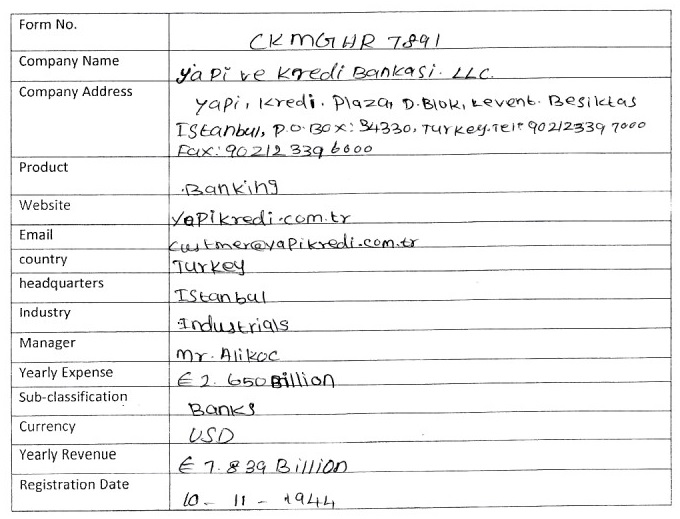 Form No. CKMGHR 7891
Company Name Yapi ve Kredi Bankasi. LLC.
Company Address Yapi, Kredi. Plaza, D.Blok, Levent. Besiktas
Istanbul, P.O.Box: 34330, Turkey.Tel: 90212339 7000
Fax: 90212 339 6000
Product Banking
Website Yapikredi.com.tr
Email custmer@yapikredi.com.tr
country Turkey
headquarters Istanbul
Industry Industrials
Manager Mr. Alikoc
Yearly Expense € 2. 650 Billion
Sub-classification Banks
Currency USD
Yearly Revenue € 7.839 Billion
Registration Date 10 - 11 - 1944